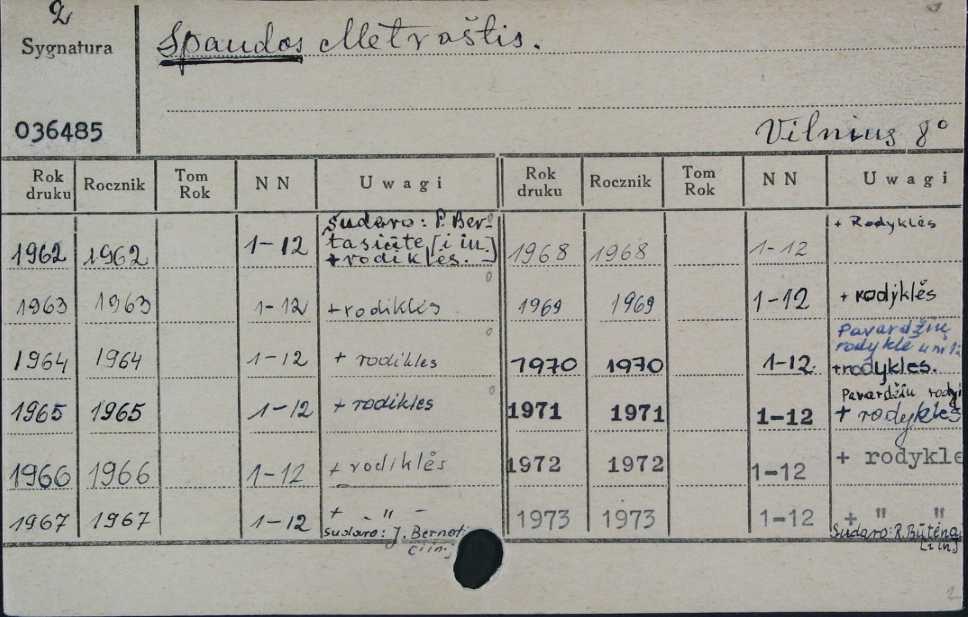 2
Sygnatura
Spaudos Metraštis.
036485
Vilnius 8°
Rok druku Rocznik Tom Rok NN Uwagi Rok druku Rocznik Tom Rok NN Uwagi
1962 1962 1-12 Sudaro: P. Ber-
tasiūtė [i in.]
+ rodiklės. 1968 1968 1-12 + Rodyklės
1963 1963 1-12 + rodiklės 1969 1969 1-12 + rodyklės
1964 1964 1-12 + rodikles 1970 1970 1-12. Pavardžių
rodyklė
+rodykles.
1965 1965 1-12 + rodikles 1971 1971 1-12 Pavardžiu
+ rodykles
1966 1966 1-12 + rodiklės 1972 1972 1-12 + rodykle
1967 1967 1-12 + - " - 1973 1973 1-12 + " "
Sudaro: J. Bernot
[i in.] Sudaro: R. Būtėna
[i in]
2